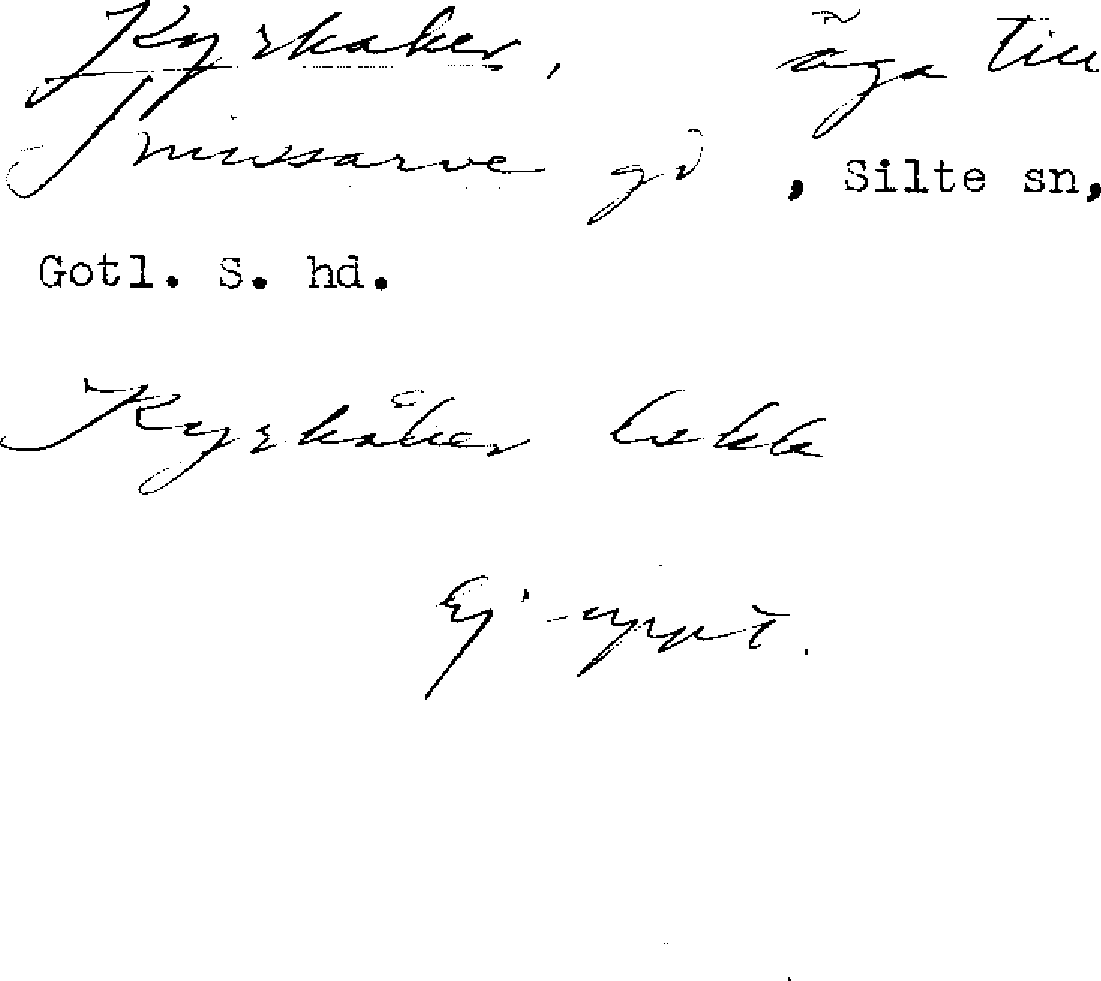 Kyrkåker, äga till
Snussarve gd, Silte sn,
Gotl. S. hd.
Kyrkåker
Ej uppt.